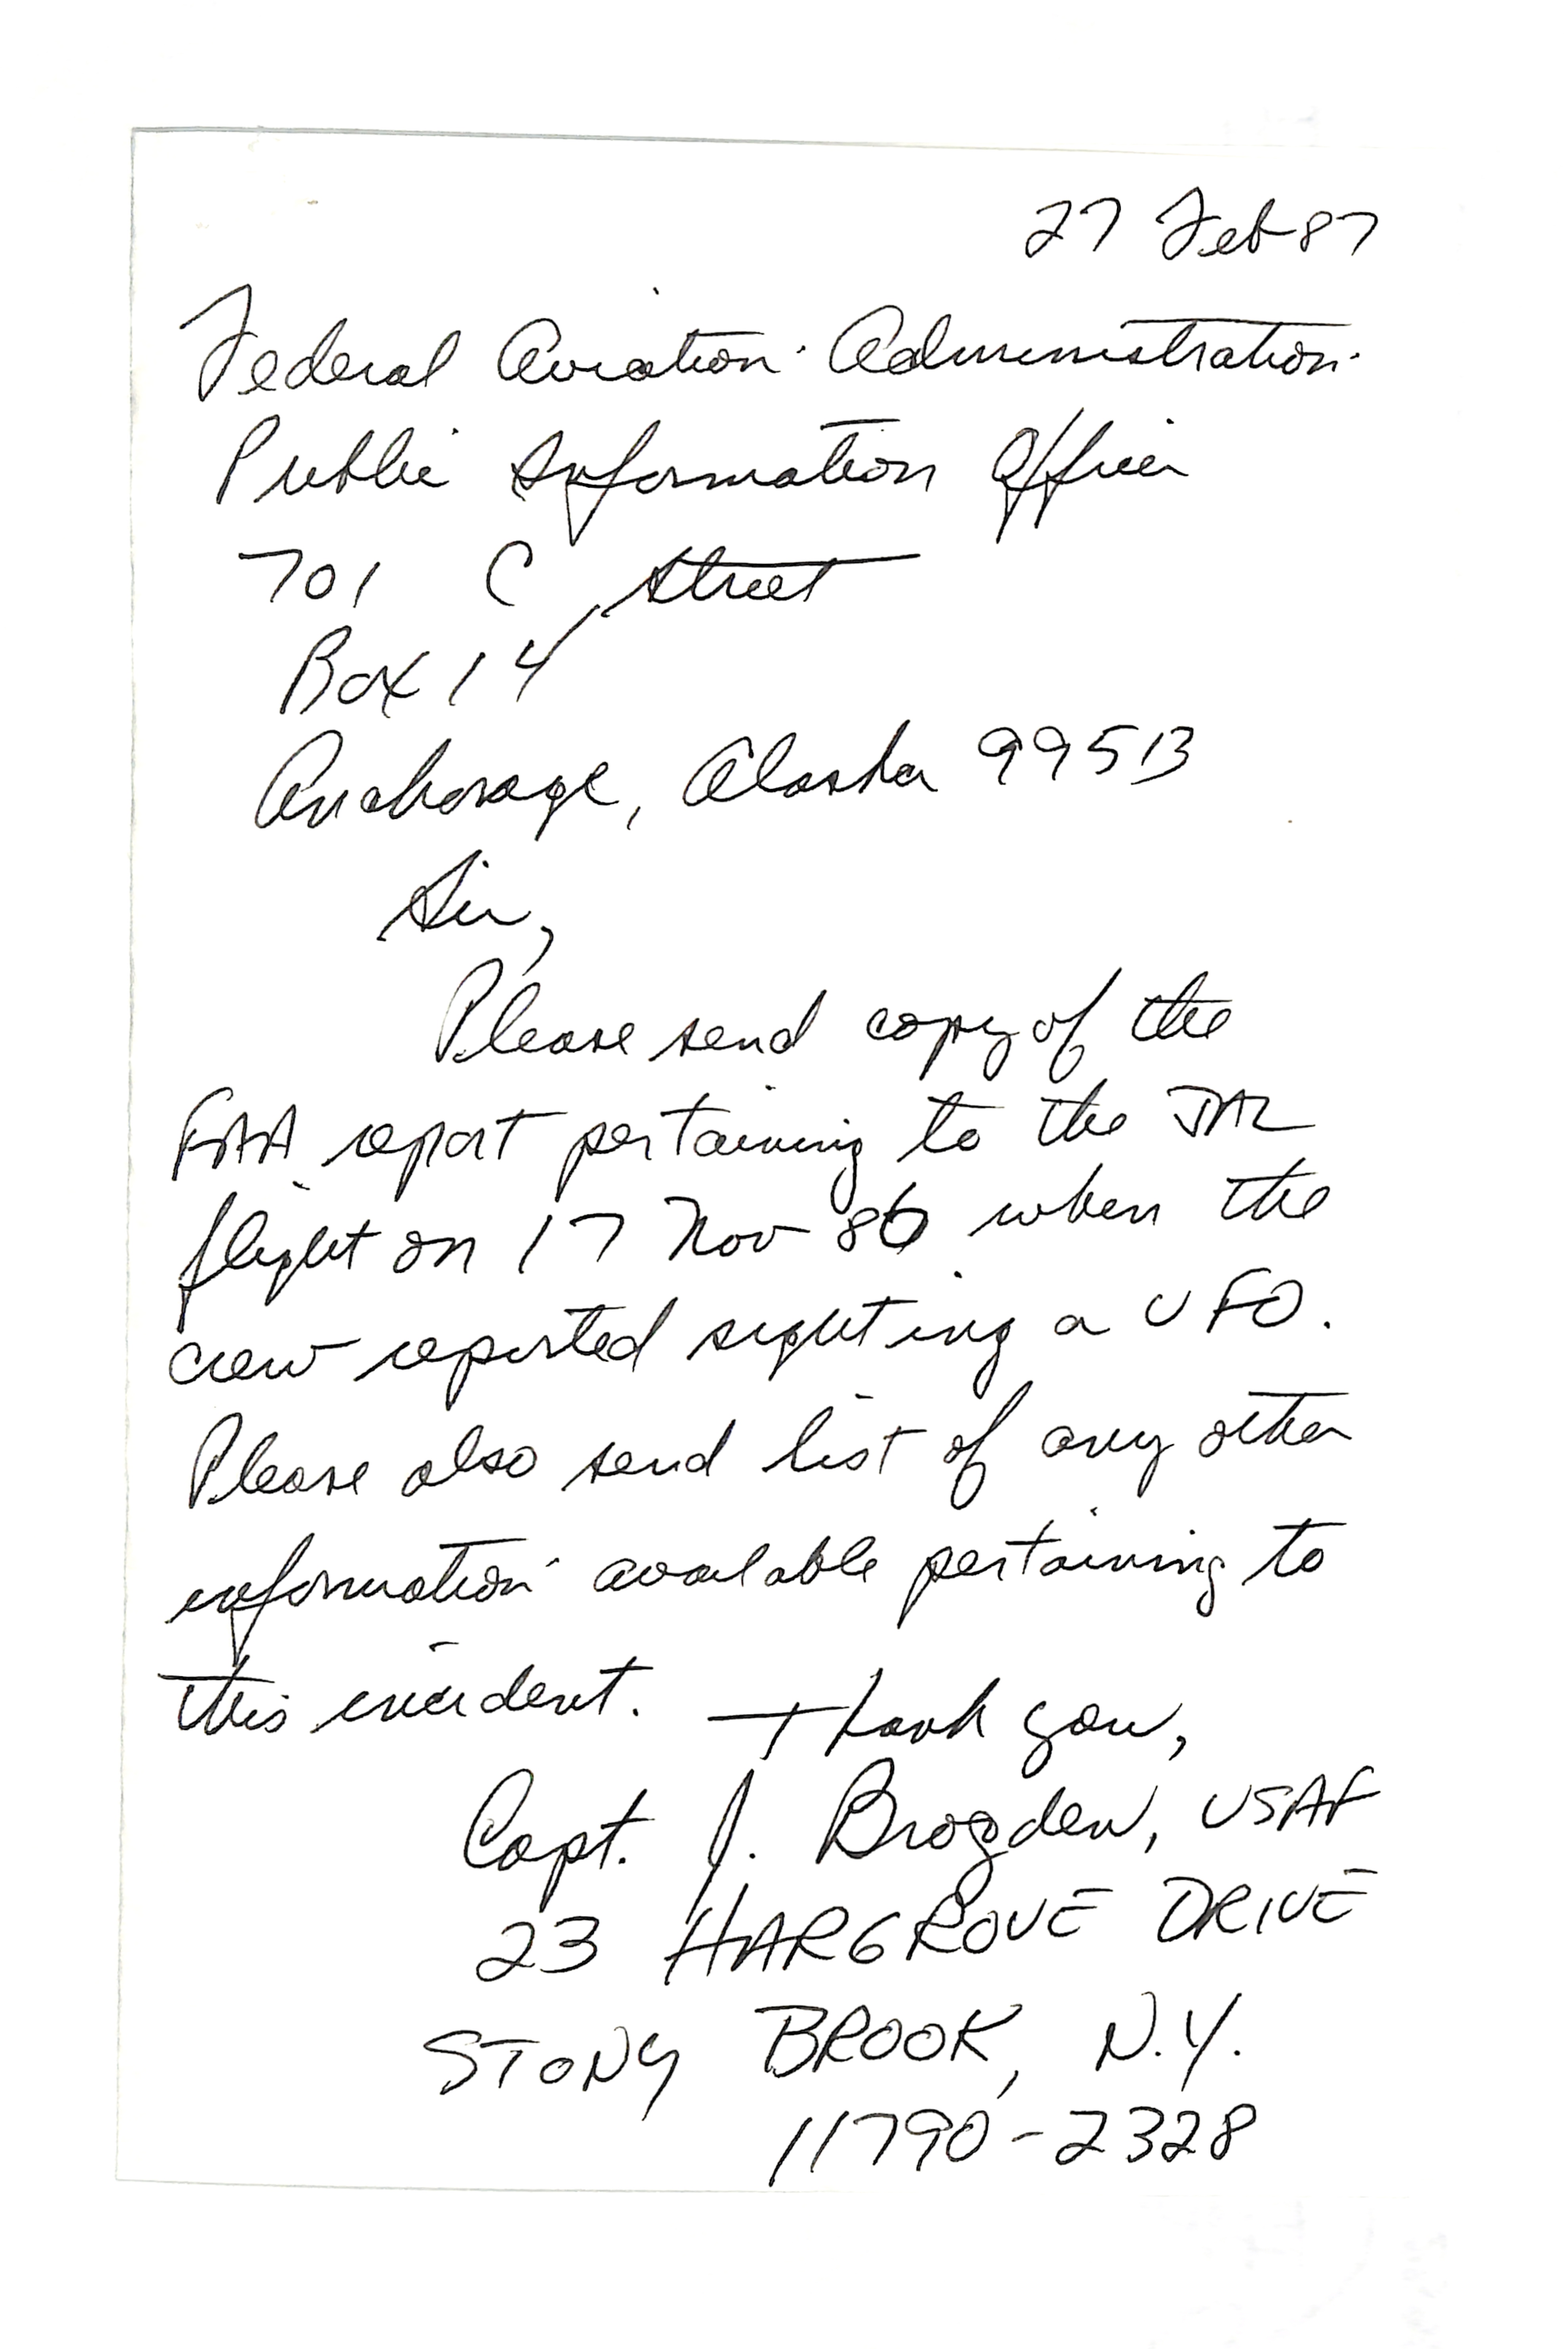 27 Feb 87
Federal Aviation Administration
Public Information Officer
701 C Street
Box 14
Anchorage, Alaska 99513
Sir,
Please send copy of the
FAA report pertaining to the JAL
flight on 17 Nov 86 when the
crew reported sighting a UFO.
Please also send list of any other
information available pertaining to
this incident. Thank you,
Capt. J. Brogden, USAF
23 HARGROVE DRIVE
STONY BROOK, N.Y.
11790-2328